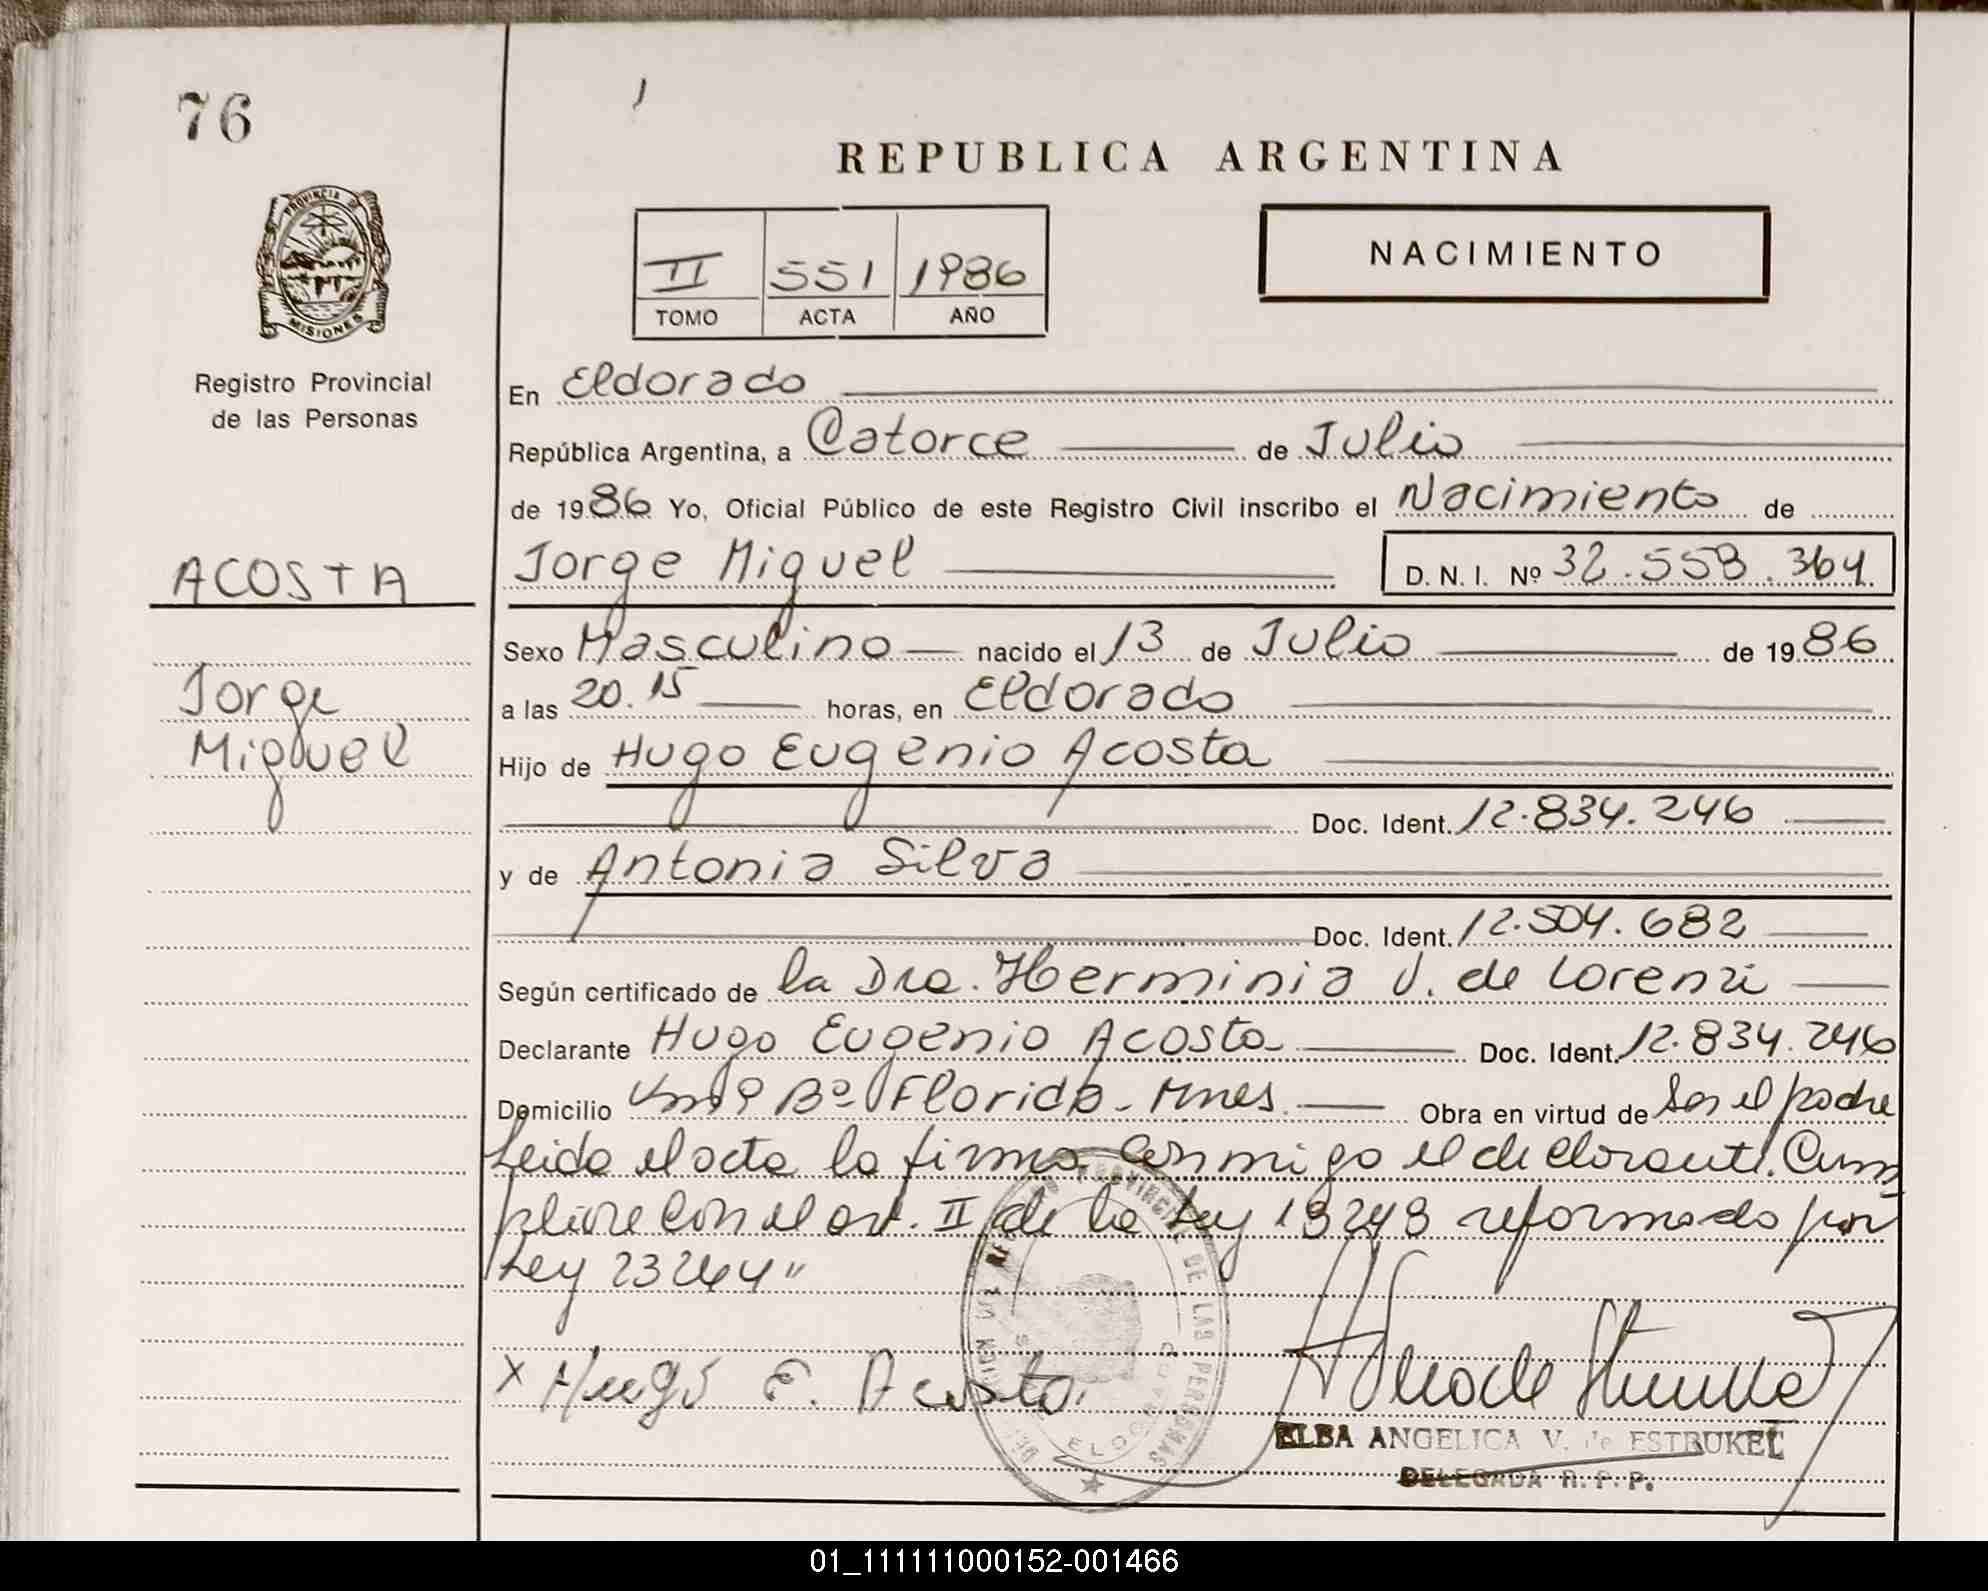 76
REPUBLICA ARGENTINA
PROVINCIA DE
MISIONES
Registro Provincial
de las Personas
II 551 1986
TOMO ACTA AÑO
NACIMIENTO
En Eldorado
República Argentina, a Catorce de Julio
de 1986 Yo, Oficial Público de este Registro Civil inscribo el Nacimiento de
ACOSTA
Jorge Miguel D.N.I. Nº 32.558.364
Sexo Masculino nacido el 13 de Julio de 1986
Jorge
Miguel
a las 20.15 horas, en Eldorado
Hijo de Hugo Eugenio Acosta
Doc. Ident. 12.834.246
y de Antonia Silva
Doc. Ident. 12.504.682
Según certificado de la Dra. Herminia V. de Lorenzi
Declarante Hugo Eugenio Acosta Doc. Ident. 12.834.246
Domicilio Bº Florida - Mnes. Obra en virtud de Ser el padre
Leida el acta la firma conmigo el declarante. Cum
pliose con el art. II de la Ley 18248 reformado por
Ley 23264"
x Hugo E. Acosta
ELBA ANGELICA V. de ESTRUKEL
DELEGADA R. P. P.
REGISTRO PROVINCIAL DE LAS PERSONAS
ELDORADO
01_111111000152-001466